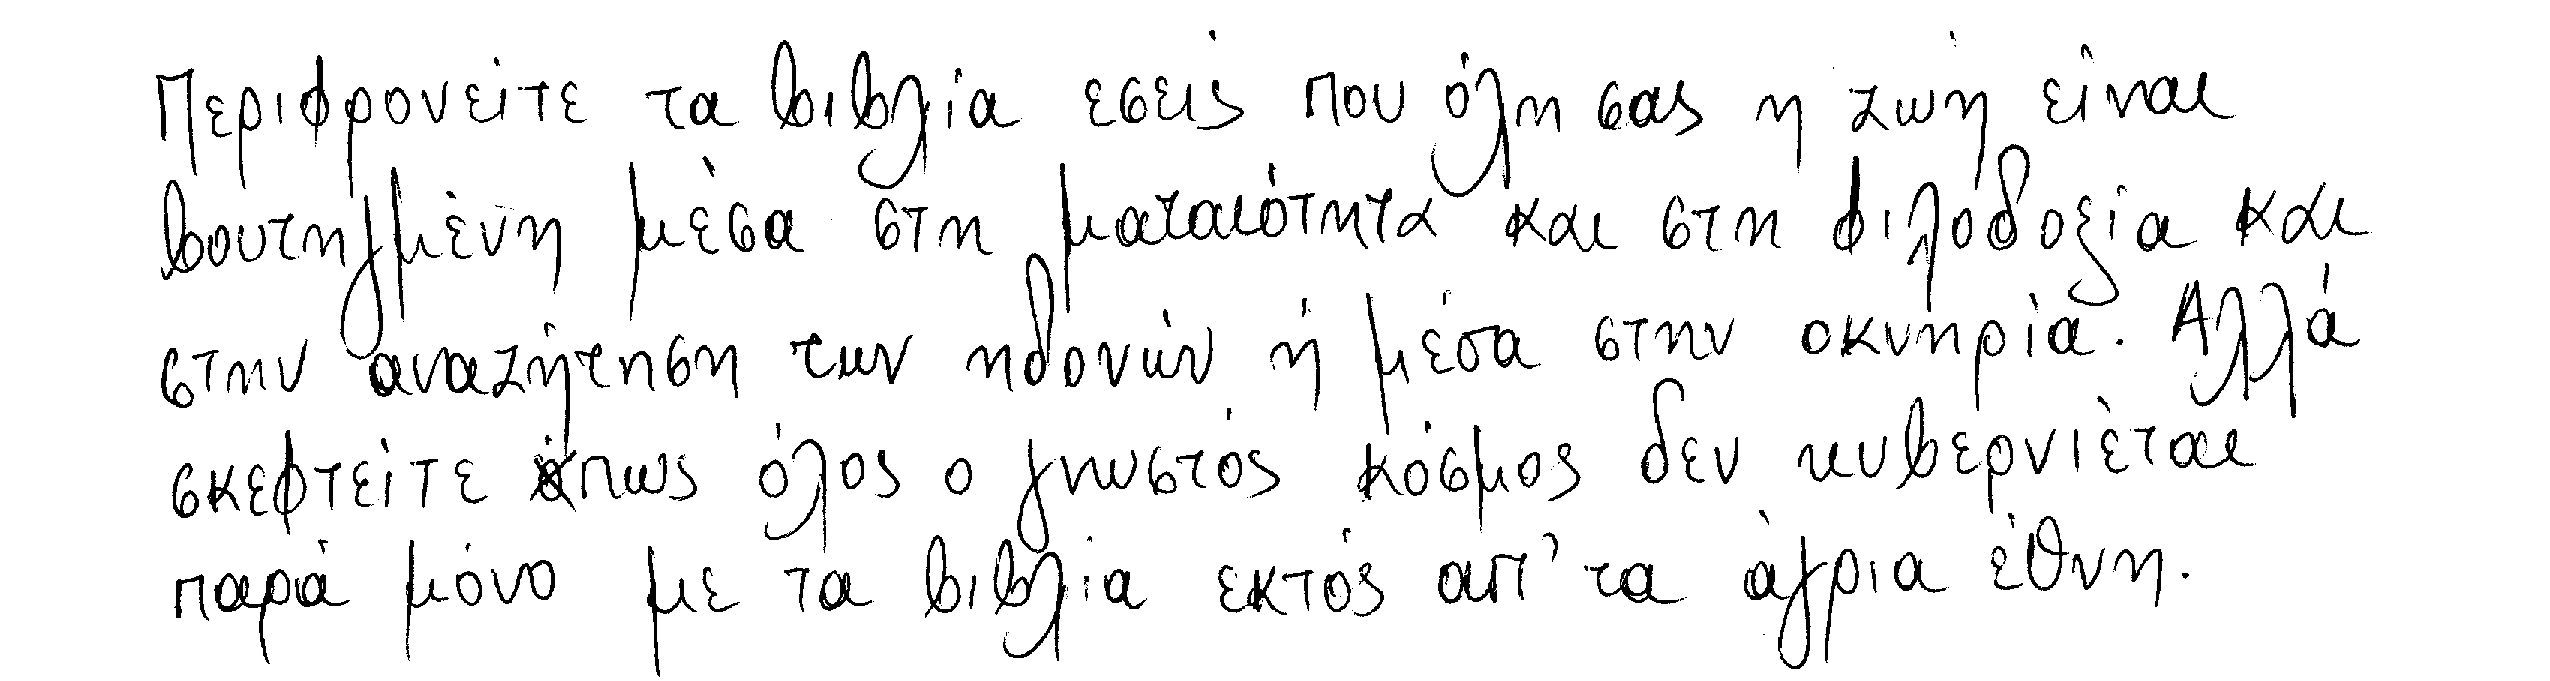 Περιφρονείτε τα βιβλία εσείς που όλη σας η ζωή είναι
βουτηγμένη μέσα στη ματαιότητα και στη φιλοδοξία και
στην αναζήτηση των ηδονών ή μέσα στην οκνηρία. Αλλά
σκεφτείτε πως όλος ο γνωστός κόσμος δεν κυβερνιέται
παρά μόνο με τα βιβλία εκτός απ' τα άγρια έθνη.